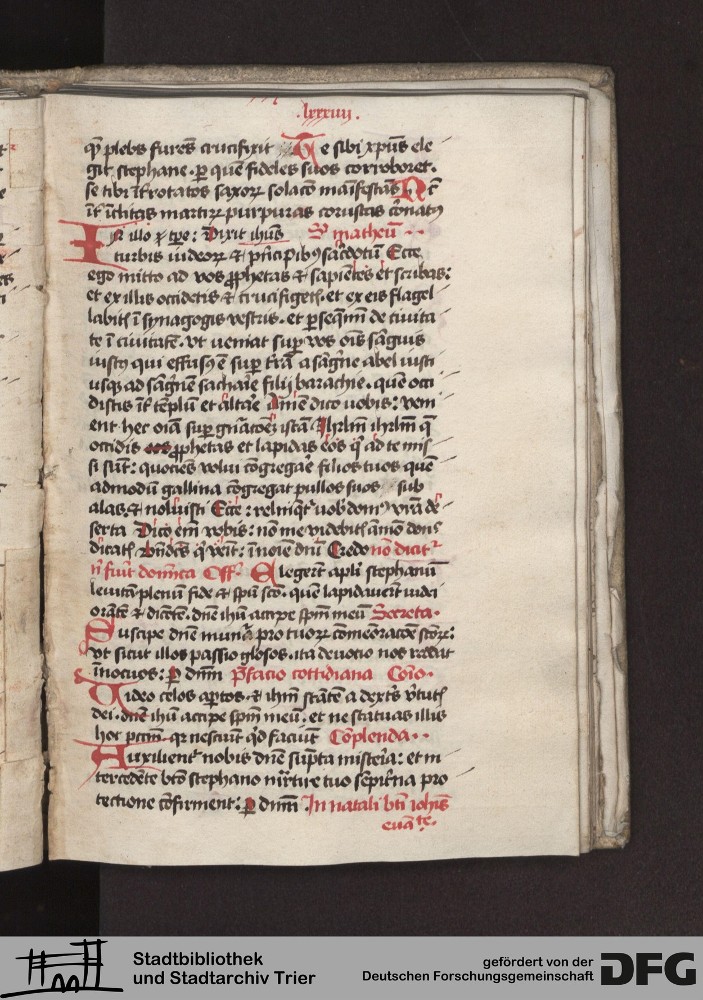 .lxxxiiij.
qͥ plebs furēs crucifixit Te sibi xp̄us ele
git stephane . ꝑ quē fideles suos corroboret .
se tibi īt̄ rotatos saxoꝝ solacō maīfestās Nē
īt̄ īclitas martirꝝ purpuras coruscas cōnatꝰ
In illo ꝛ tꝑe : Dixit ihūs S᷑ matheū
turbis iudeoꝝ ⁊ pͥncipibꝰ sac̄dotū Ecce
ego mitto ad vos ꝓphetas ⁊ sapiētes et scribas :
et ex illis occidetis ⁊ crucifiget̄ . et ex eis flagel
labit̄ ī synagogis vestris . et ꝑseqm̄ī de ciuita
te ī ciuitatē . vt veniat suꝑ vos oīs sāguis
iustꝰ qui effusꝰ ē suꝑ t̄rā a sāgͥne abel iusti
usqꝫ ad sāgͥnē zacharie filij barachie . quē occi
distis īt̄ tēplū et altāe Amē dico uobis : veni
ent hec oīa suꝑ gn̄acōeꝫ istā Ihrlm̄ ihrlm̄ q̄
occidis ꝓphetas et lapidas eos qͥ ad te mis
si sūt : quociēs volui cōgregāe filios tuos quē
admodū gallina cōgregat pullos suos sub
alas ⁊ noluisti Ecce : relinq̄t̄ uob̄ domꝰ vrā de
serta Dico em̄ vobis : nō me videbit̄ āmō donͨ
dicat̄ . Bn̄dcͥs qͥ veīt : ī noīe dnī Credo nō dicitᷣ
nͥ fuit dom̄ica Off̄ Elegerūt apl̄i stephanū
leuitā plenū fide ⁊ spū scō . quē lapidauerūt iudei
orātē ⁊ dicētē . dn̄e ihū accipe spm̄ meū Secreta .
Suscipe dn̄e munͣa pro tuoꝝ cōmeoracōe sc̄oꝝ :
vt sicut illos passio gl̄osos . ita deuocio nos reddat
īnocuos : ꝑ dnm̄ p̄facio cottidiana Cōio .
Uideo celos aꝑtos . ⁊ ihm̄ stātē a dextͥs vͥtutͥ
dei . dn̄e ihū accipe spm̄ meū . et ne statuas illis
hoc pctm̄ . qͥ nesciūt qͥd faciūt Cōplenda .
Auxilient᷑ nobis dn̄e sūpta misteͥa : et in
tercedēte btō stephano mr̄tire tuo sēpitͥna pro
tectione cōfirment : ꝑ dnm̄ . In natali btī iohīs
euāᵗᵉ.
Stadtbibliothek
und Stadtarchiv Trier
gefördert von der
Deutschen Forschungsgemeinschaft
DFG